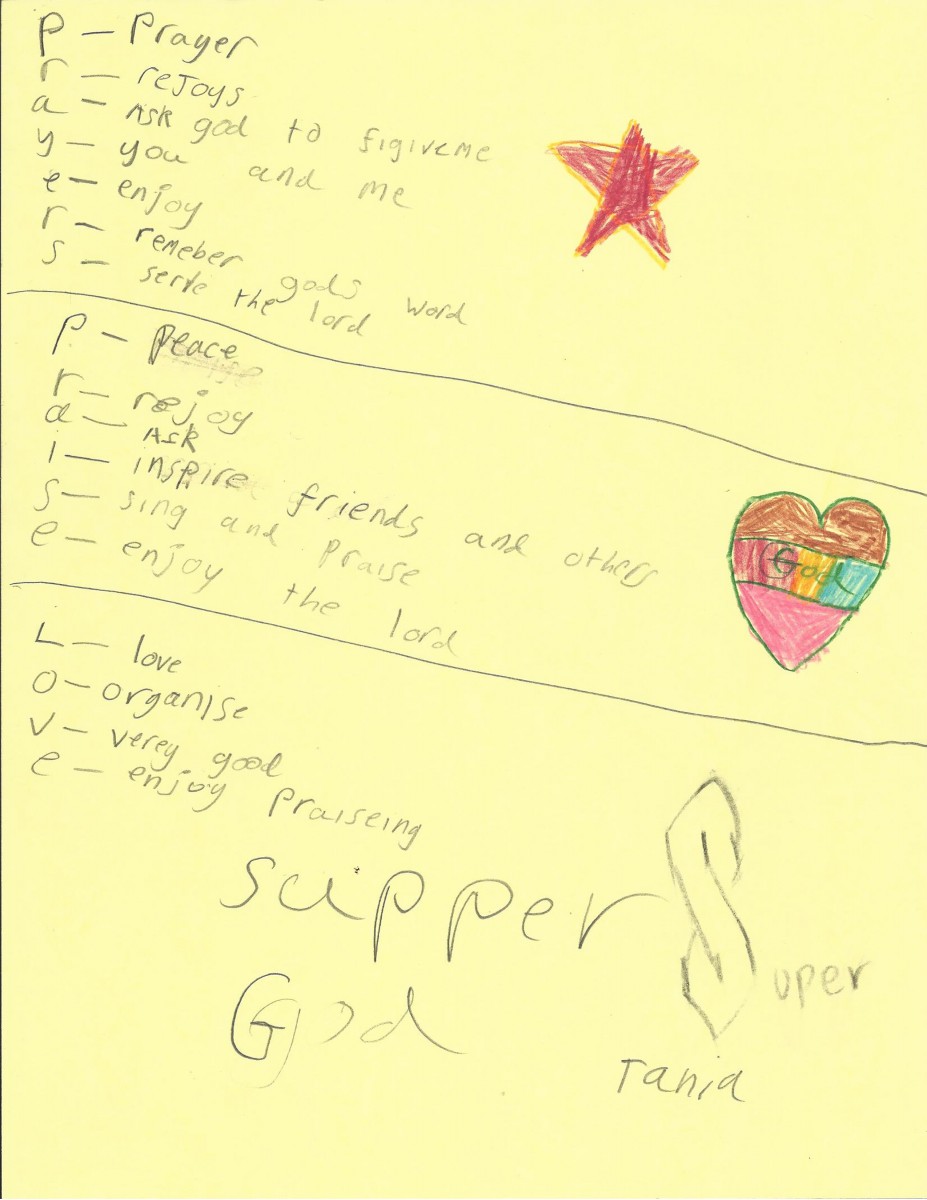 P - Prayer
r - reJoys
a - Ask god to figiveme
y - you and me
e - enjoy
r - remeber gods word
s - serve the lord
P - Peace
r - rejoy
a - Ask
i - inspire friends and others
S - sing and Praise
e - enjoy the lord
God
L - love
O - organise
V - verey good
e - enjoy Praiseing
Supper
God
Super
Tania